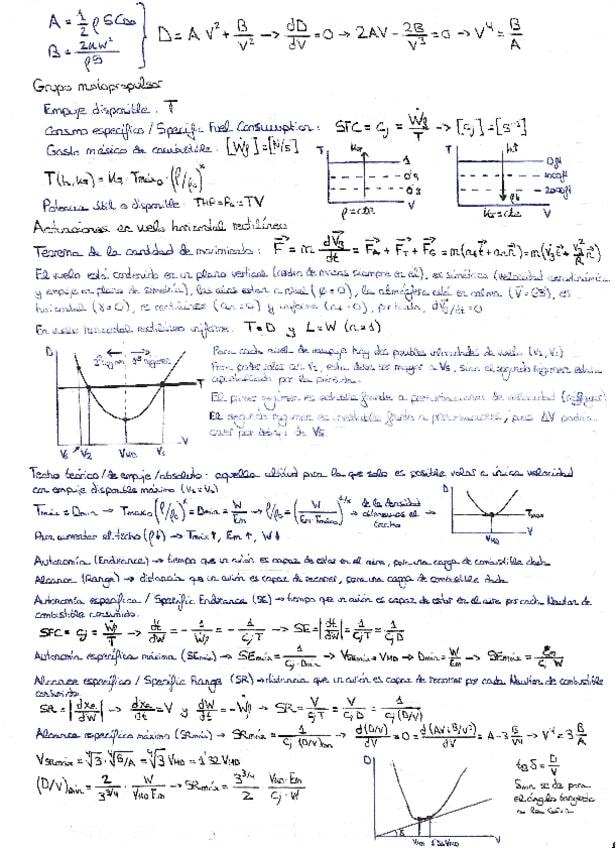 A = 1/2 ρ S C_D0
B = 2KW²/ρS
D = A V² + B/V² → dD/dV = 0 → 2AV - 2B/V³ = 0 → V⁴ = B/A
Grupo motopropulsor
Empuje disponible: T
Consumo específico / Specific Fuel Consumption: SFC = cj = Ẇf/T → [cj] = [s⁻¹]
Gasto másico de combustible: [Ẇf] = [N/s]
T(h, ) = · (ρ/ρ₀)^x
Potencia útil o disponible: = TV
T
1
0'9
0'8
V
ρ = cte
T
0 ft
1000 ft
2000 ft
V
= cte
Actuaciones en vuelo horizontal rectilíneo
Teorema de la cantidad de movimiento: F = m dVg/dt = FA + FT + FG = m(at t + an n) = m(V̇g t + Vg²/R n)
El vuelo está contenido en un plano vertical (centro de masas siempre en él), es simétrico (velocidad aerodinámica
y empuje en plano de simetría), las alas están a nivel (φ = 0), la atmósfera está en calma, es
horizontal (γ = 0), es rectilíneo (an = 0) y uniforme (at = 0), por tanto, dVg/dt = 0
En vuelo horizontal rectilíneo uniforme: T = D y L = W (n = 1)
D
2º régimen
1er régimen
T
Vs V2 VMD V1 V
Para cada nivel de empuje hay dos posibles velocidades de vuelo (V1, V2)
Para poder volar en V2, esta debe ser mayor a Vs, sino el segundo régimen estará
por la pérdida.
El primer régimen es estable frente a perturbaciones de velocidad
El segundo régimen es inestable frente a perturbaciones, pues ΔV podría
caer por debajo de Vs.
Techo teórico / de empuje / absoluto: aquella altitud para la que solo es posible volar a única velocidad
con empuje disponible máximo (V1 = V2)
Tmáx = Dmin → Tmax0 (ρ/ρ₀)^x = Dmin = W/Em → ρ/ρ₀ = (W/Em·Tmax0)^1/x → de la densidad obtenemos el techo
D
Tmax
VMD
V
Para aumentar el techo (ρ↓) → Tmáx↑, Em↑, W↓
Autonomía (Endurance) → tiempo que un avión es capaz de estar en el aire, para una carga de combustible dada
Alcance (Range) → distancia que un avión es capaz de recorrer, para una carga de combustible dada
Autonomía específica / Specific Endurance (SE) → tiempo que un avión es capaz de estar en el aire por cada Newton de
combustible consumido.
SFC = cj = Ẇf/T → dt/dW = - 1/Ẇf = - 1/cj T → SE = |dt/dW| = 1/cj T = 1/cj D
Autonomía específica máxima (SEmáx) → SEmáx = 1/cj·Dmin → VSEmáx = VMD → Dmin = W/Em → SEmáx = Em/cj W
Alcance específico / Specific Range (SR) → distancia que un avión es capaz de recorrer por cada Newton de combustible
consumido.
SR = |dxe/dW| → dxe/dt = V y dW/dt = -Ẇf → SR = V/cj T = V/cj D = 1/cj (D/V)
Alcance específico máximo (SRmáx) → SRmáx = 1/cj (D/V)min → d(D/V)/dV = 0 = d(AV + B/V³)/dV = A - 3 B/V⁴ → V⁴ = 3 B/A
VSRmáx = ⁴√3 · ⁴√B/A = ⁴√3 VMD = 1'32 VMD
(D/V)min = 2/3^3/4 · W/VMD Em → SRmáx = 3^3/4/2 · VMD·Em/cj·W
D
δ
VMD 1'32VMD
V
tg δ = D/V
δmin se da para
el ángulo tangente
a la curva